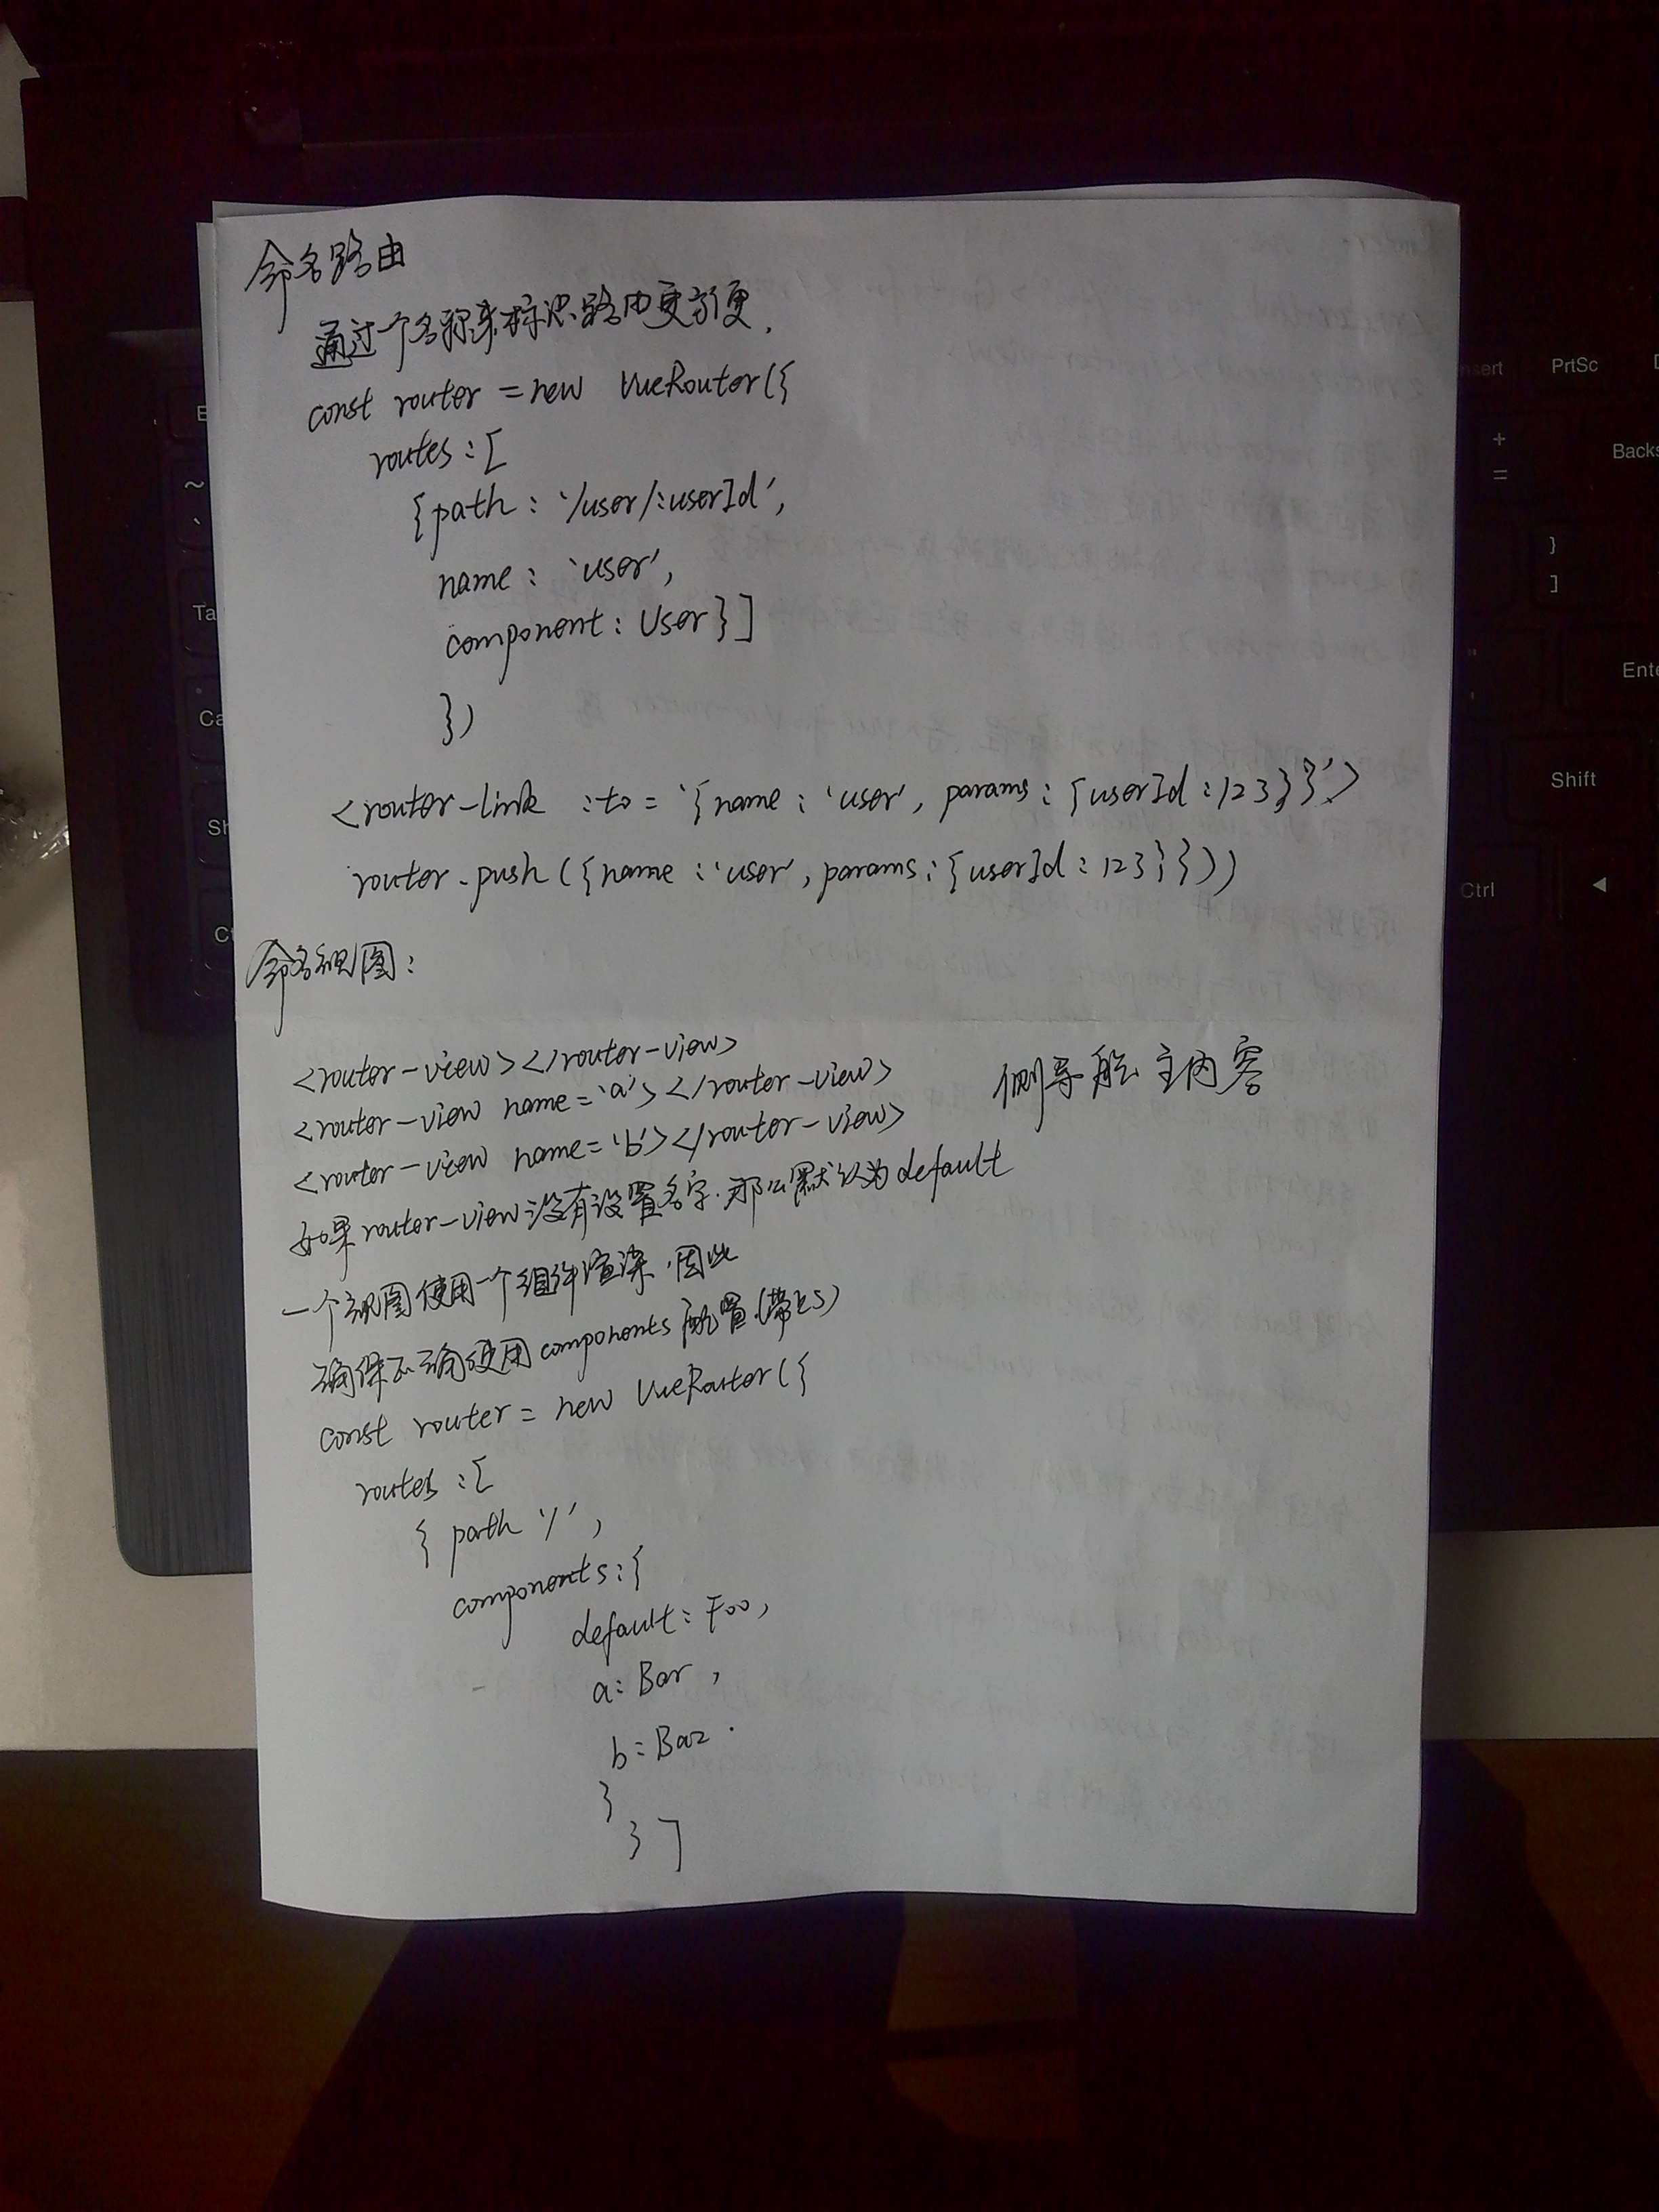 命名路由
通过一个名称来标识路由更方便.
const router = new VueRouter({
routes:[
{path: '/user/:userId',
name: 'user',
component: User}]
})
<router-link :to='{name:'user', params:{userId:123}}'>
router.push({name:'user', params:{userId:123}}))
命名视图:
<router-view></router-view>
<router-view name='a'></router-view>
侧导航 主内容
<router-view name='b'></router-view>
如果router-view没有设置名字.那么默认为default
一个视图使用一个组件渲染.因此
确保正确使用components配置.(带上s)
const router = new VueRouter({
routes:[
{ path '/',
components:{
default: Foo,
a: Bar,
b: Baz.
}
}]
PrtSc
Backs
Ente
Shift
Ctrl
+
=
}
]
~
Ta
Ca
Sh